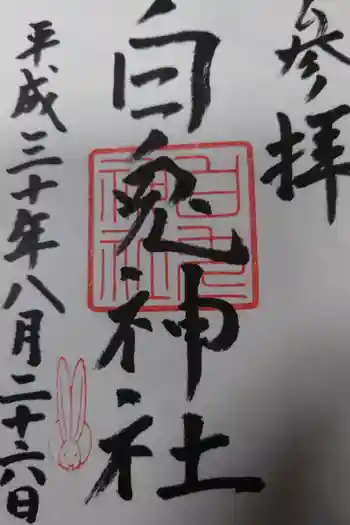 参拝
白兎神社
平成三十年八月二十六日
白兎神社